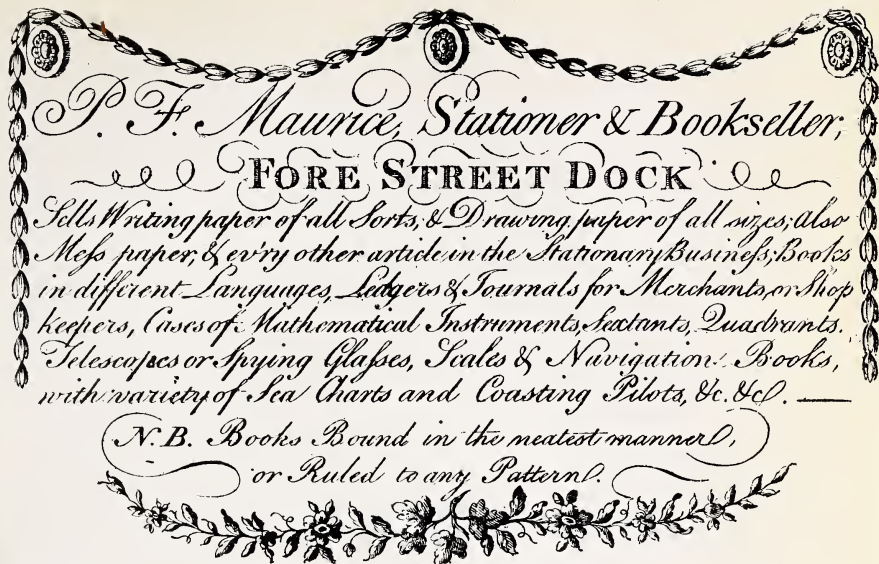 P. F. Maurice, Stationer & Bookseller,
FORE STREET DOCK
Sells Writing paper of all Sorts, & Drawing paper of all sizes; also
Meſs paper, & ev'ry other article in the Stationary Buſineſs; Books
in different Languages, Ledgers & Journals for Merchants, or Shop
keepers, Cases of Mathematical Instruments, Sextants, Quadrants.
Telescopes or Spying Glaſses, Scales & Navigation Books,
with variety of Sea Charts and Coasting Pilots, &c. &c.
N.B. Books Bound in the neatest manner,
or Ruled to any Pattern.